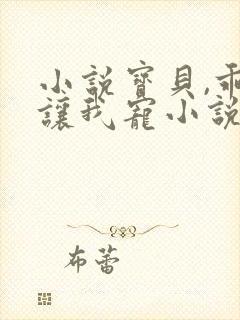 小說寶貝,乖
讓我寵小說
布蕾